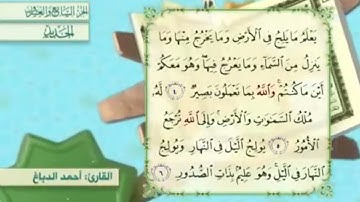 الجزء السابع والعشرون
الحديد
يَعْلَمُ مَا يَلِجُ فِي الْأَرْضِ وَمَا يَخْرُجُ مِنْهَا وَمَا
يَنزِلُ مِنَ السَّمَاءِ وَمَا يَعْرُجُ فِيهَا وَهُوَ مَعَكُمْ
أَيْنَ مَا كُنتُمْ وَاللَّهُ بِمَا تَعْمَلُونَ بَصِيرٌ ٤ لَهُ
مُلْكُ السَّمَوَاتِ وَالْأَرْضِ وَإِلَى اللَّهِ تُرْجَعُ
الْأُمُورُ ٥ يُولِجُ الَّيْلَ فِي النَّهَارِ وَيُولِجُ
النَّهَارَ فِي الَّيْلِ وَهُوَ عَلِيمٌ بِذَاتِ الصُّدُورِ ٦
القارئ: أحمد الدباغ